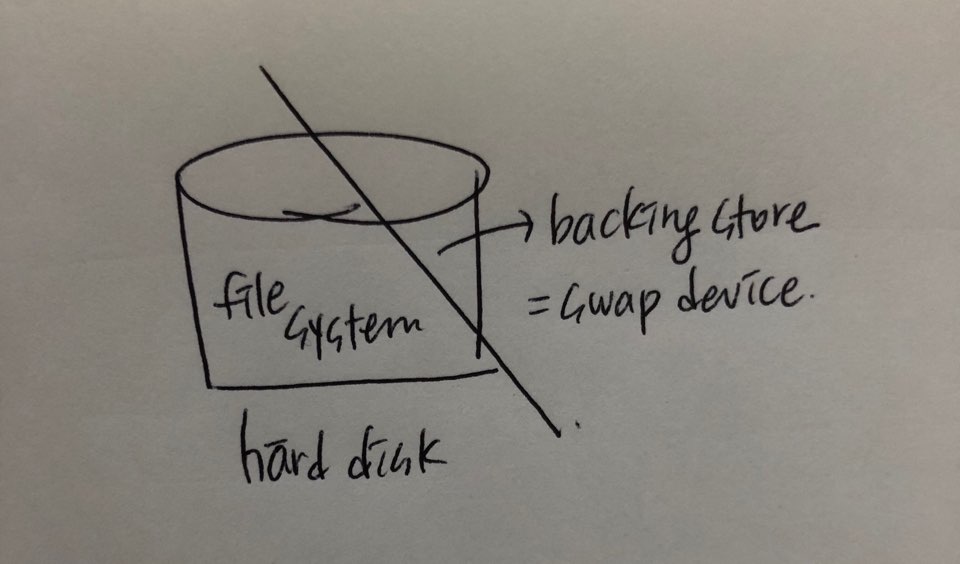 file
system
hard disk
backing store
= swap device.